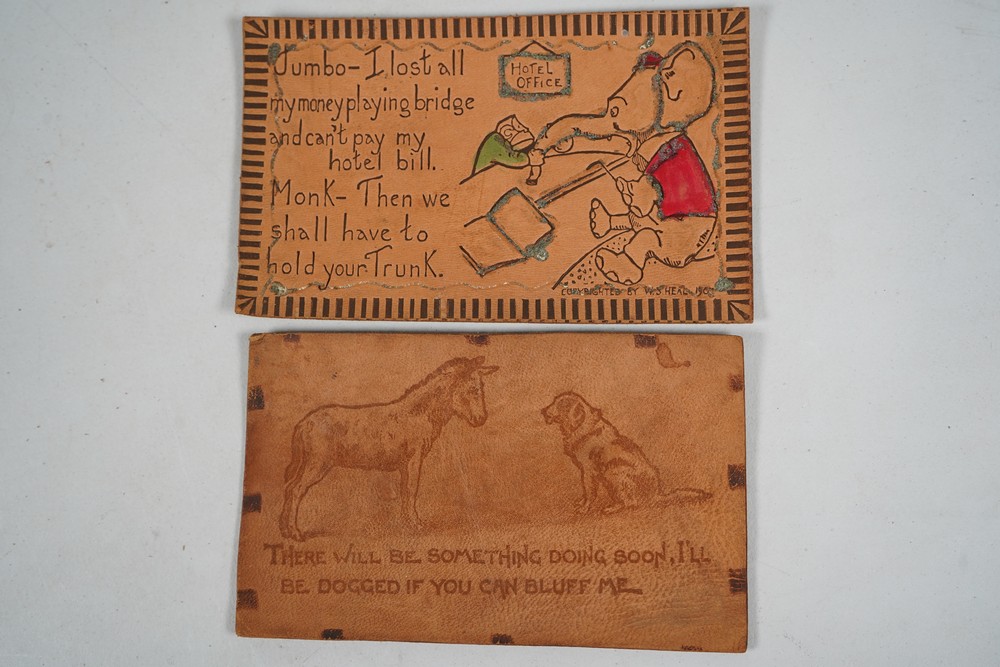 Jumbo- I lost all
my money playing bridge
and can't pay my
hotel bill.
Monk- Then we
shall have to
hold your Trunk.
HOTEL
OFFICE
COPYRIGHTED BY W.S. HEAL
THERE WILL BE SOMETHING DOING SOON, I'LL
BE DOGGED IF YOU CAN BLUFF ME